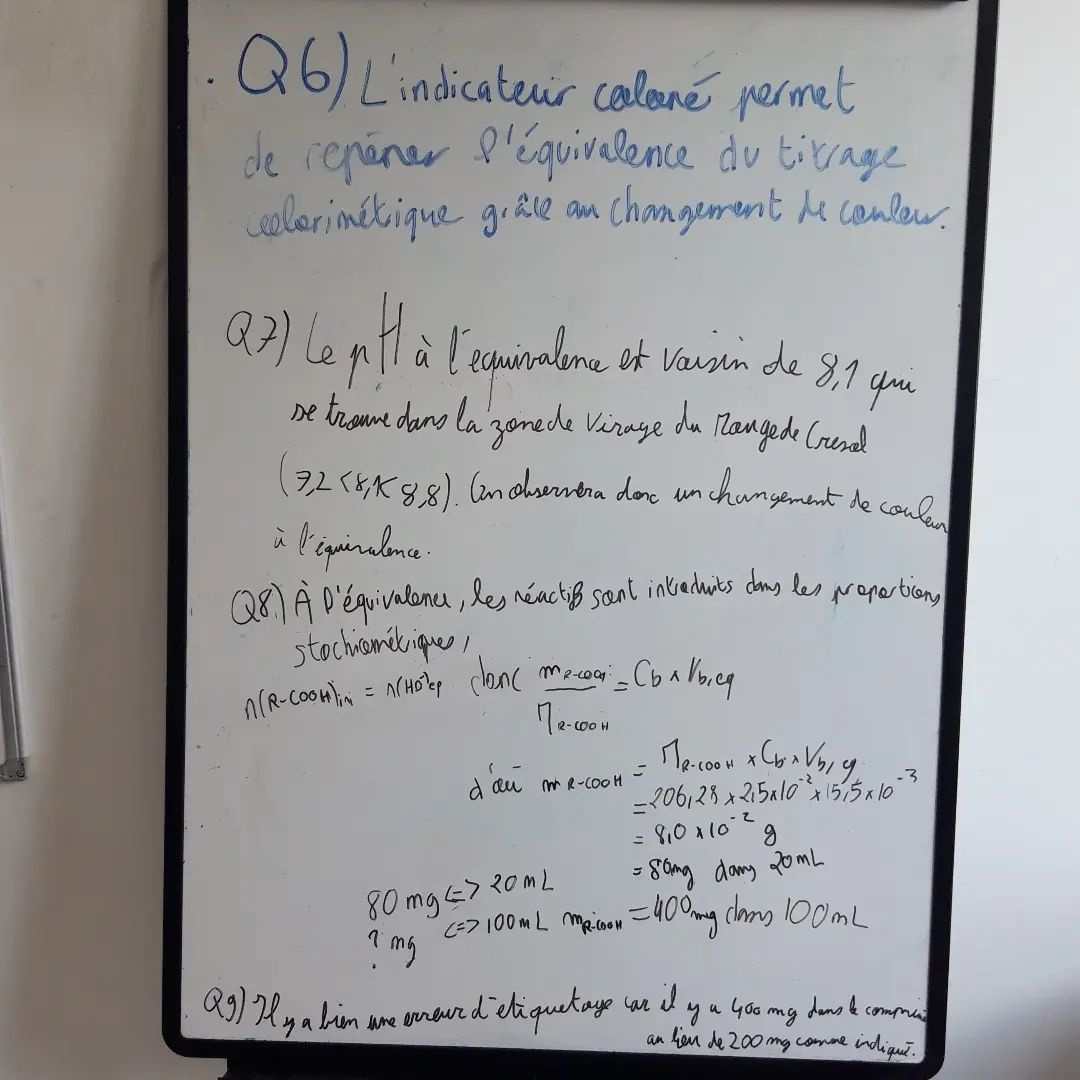 Q6) L'indicateur coloré permet
de repérer l'équivalence du titrage
colorimétrique grâce au changement de couleur.
Q7) Le pH à l'équivalence est voisin de 8,1 qui
se trouve dans la zone de virage du Rouge de Cresol
(7,2 < 8,1 < 8,8). On observera donc un changement de couleur
à l'équivalence.
Q8) À l'équivalence, les réactifs sont introduits dans les proportions
stochiométriques,
n(R-COOH)ini = n(HO⁻)eq donc m R-COOH / M R-COOH = Cb x Vb,eq
d'où m R-COOH = M R-COOH x Cb x Vb,eq
= 206,28 x 2,5x10⁻² x 15,5 x 10⁻³
= 8,0 x 10⁻² g
= 80mg dans 20mL
80 mg <=> 20 mL
? mg <=> 100 mL m R-COOH = 400mg dans 100mL
Q9) Il y a bien une erreur d'étiquetage car il y a 400 mg dans le comprimé
au lieu de 200 mg comme indiqué.